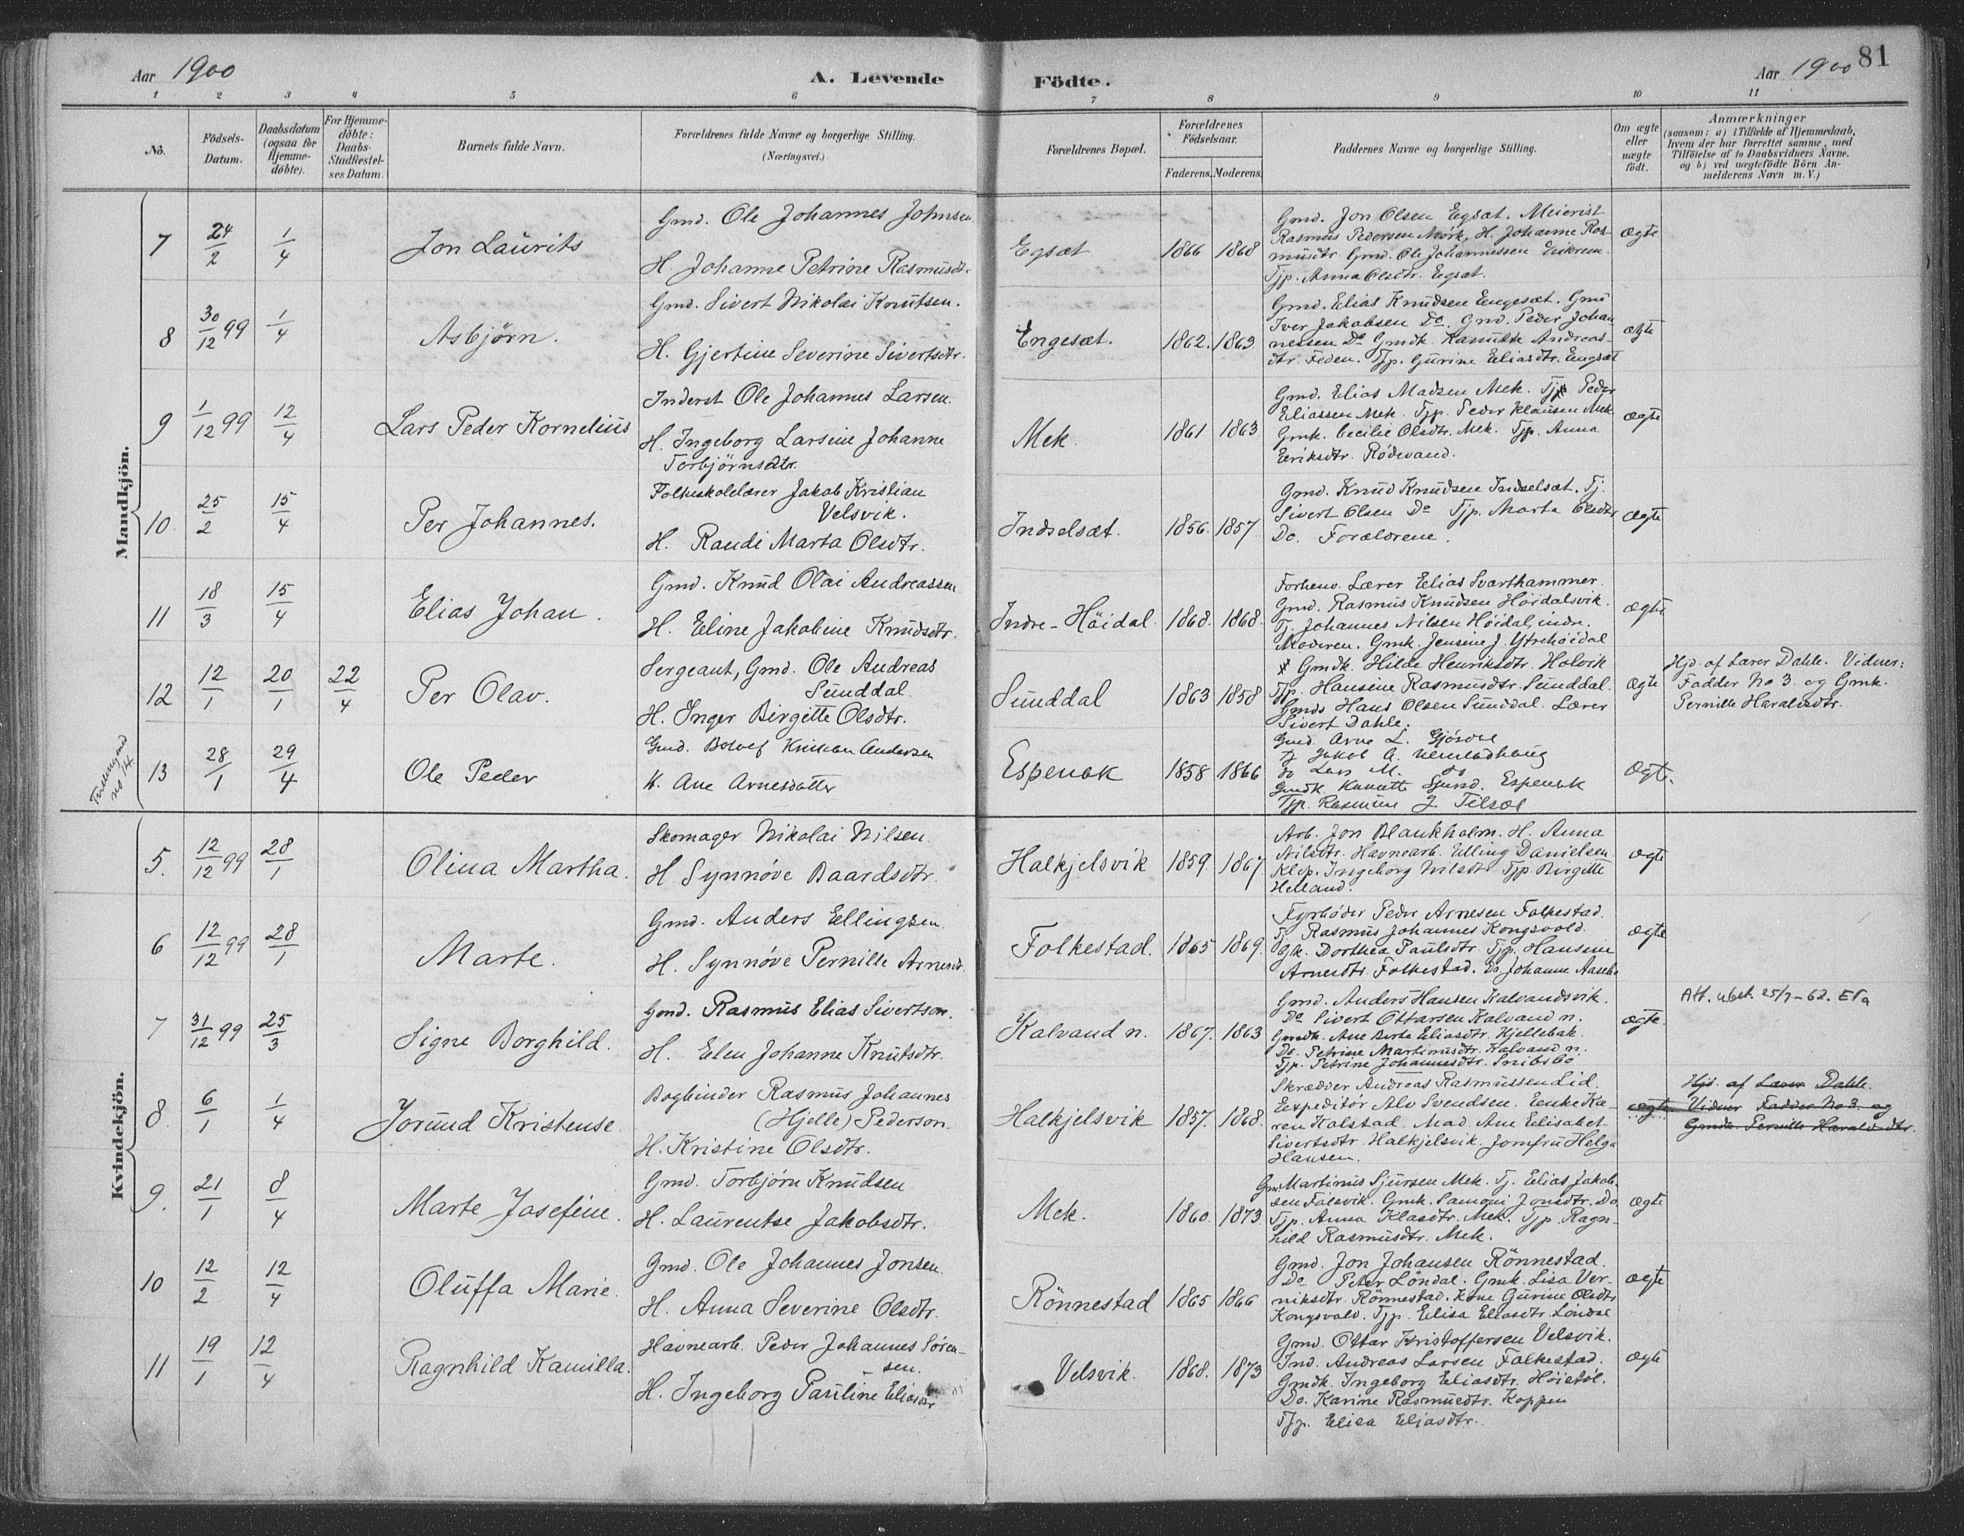 Aar 1900
A. Levende Födte.
Aar 1900
81
1 2 3 4 5 6 7 8 9 10 11
No.
Födsels-
Datum.
Daabsdatum
(ogsaa för
Hjemme-
döbte).
For Hjemme-
döbte:
Daabs-
Stadfæstel-
ses Datum.
Barnets fulde Navn.
Forældrenes fulde Navne og borgerlige Stilling.
(Næringsvei.)
Forældrenes Bopæl.
Forældrenes
Födselsaar.
Faderens. Moderens.
Faddernes Navne og borgerlige Stilling.
Om ægte
eller
uægte
födt.
Anmærkninger
(saasom: a) i Tilfælde af Hjemmedaab,
hvem der har forrettet samme, med
Tilföielse af to Daabsvidners Navne.
og b) ved uægtefödte Börn An-
melderens Navn m. V.)
Mandkjön.
7 24/2 1/4 Jon Laurits
Gmd. Ole Johannes Johnsen
H. Johanne Petrine Rasmusdtr.
Egsæt 1866 1868
Gmd. Jon Olsen Egsæt. Meierist
Rasmus Pedersen Mörk, H. Johanne Ras-
musdtr. Gmd. Ole Johannessen Eikrem
Tjp. Anna Olsdtr. Egsæt.
ægte
8 30/12 99 1/4 Asbjørn.
Gmd. Sivert Nikolai Knutsen.
H. Gjertine Severine Sivertsdtr.
Engesæt. 1862. 1863
Gmd. Elias Knudsen Engesæt. Gmd
Iver Jakobsen Do. Gmd. Peder Johan-
nessen Do Gmdk. Andreas-
dtr. Feden. Tjp. Gurine Eliasdtr. Engsæt
ægte
9 1/12 99 12/4 Lars Peder Kornelius
Inderst Ole Johannes Larsen.
H. Ingeborg Larsine Johanne
Torbjørnsdtr.
Mek. 1861 1863
Gmd. Elias Madsen Mek. Tjp Peder
Eliassen Mek. Tjp. Peder Klausen Mek
Gmk. Cecilie Olsdtr. Mek. Tjp. Anna
Eriksdtr. Rødevand.
ægte
10. 25/2 15/4 Per Johannes.
Folkeskolelærer Jakob Kristian
Velsvik.
H. Randi Marta Olsdtr.
Indselsæt. 1856. 1857.
Gmd. Knud Knudsen Indselsæt. Tj.
Sivert Olsen Do Tjp. Marta Olsdtr
Do. Forældrene.
ægte
11 18/3 15/4 Elias Johan.
Gmd. Knud Olai Andreassen
H. Eline Jakobine Knudsdtr.
Indre-Höidal. 1868. 1868.
Forhenv. Lærer Elias Svarthammer.
Gmd. Rasmus Knudsen Höidalsvik.
Tj. Johannes Nilsen Höidal, indre.
Moderen. Gmk. Jensine J. Ytrehöidal
ægte
12 12/1 20/1 22/4 Per Olav.
Sergeant, Gmd. Ole Andreas
Sunddal.
H. Inger Birgitte Olsdtr.
Sunddal 1863 1858
Gmdk. Hilde Henriksdtr. Holvik
Tjp. Hansine Rasmusdtr. Sunddal.
Gmds Hans Olsen Sunddal. Lærer
Sivert Dahle.
ægte
Hjd. af Lærer Dahle. Vidner:
Fadder No 3. og Gmk.
Pernille Haraldsdtr.
Tvillinger med
no 14.
13 28/1 29/4 Ole Peder
Gmd. Kristian Andersen
H. Ane Arnesdatter
Espenæk 1858 1866
Gmd. Arne L. Gjösdal
Tj. Jakob A.
do Lars M. do
Gmdk Sjurd. Espenæk
Tjp. Rasmine J.
ægte.
Kvindekjön.
5. 12/12 99 28/1 Olina Martha.
Skomager Nikolai Nilsen.
H. Synnøve Baardsdtr.
Halkjelsvik 1859. 1867
Arb. Jon Blankholm. H. Anna
Nilsdtr. Havnearb. Elling Danielsen
Klep. Ingeborg Nilsdtr. Tjp. Birgitte
Helland.
ægte
6 12/12 99 28/1 Marte.
Gmd. Anders Ellingsen.
H. Synnøve Pernille Arnesdtr.
Folkestad. 1865 1869.
Fyrbøder Peder Arnesen Folkestad.
Tj Rasmus Johannes Kongsvold.
Gk. Dorthea Paulsdtr. Tjp. Hansine
Arnesdtr. Folkestad. Do Johanne
ægte
7 31/12 99 25/3 Signe Borghild.
Gmd. Rasmus Elias Sivertson.
H. Elen Johanne Knutsdtr.
Kalvand n. 1867. 1863
Gmd. Anders Hansen Kalvandsvik.
Do Sivert Ottarsen Kalvand n.
Gmdk. Ane Berte Eliasdtr. Hjellebak.
Do. Petrine Martinusdtr. Kalvand n.
Tjp. Petrine Johannesdtr. Snibsbö
ægte.
Att. utst. 25/7-62. ETa
8. 6/1 1/4 Jorund Kristense.
Bogbinder Rasmus Johannes
(Hjelle) Pederson.
H. Kristine Olsdtr.
Halkjelsvik 1857. 1868.
Skrædder Andreas Rasmussen Lid.
Expeditör Alv Svendsen. Enke Ka-
ren Kalstad. Mad. Ane Elisabet
Sivertsdtr. Halkjelsvik. Jomfru Helga
Hansen.
ægte
Hjd. af Lærer Dahle.
Vidner Fadder No 3. og
Gmdk. Pernille Haraldsdtr.
9. 21/1 8/4 Marte Josefine.
Gmd. Torbjørn Knudsen
H. Laurentse Jakobsdtr.
Mek. 1860. 1873
Gmd Martinus Sjursen Mek. Tj. Elias Jakob-
sen Folsvik. Gmk. Jonsdtr. Do
Tjp. Anna Klasdtr. Mek. Tjp. Ragn-
hild Rasmusdtr. Mek.
ægte
10 12/2 12/4 Oluffa Marie.
Gmd. Ole Johannes Jonsen
H. Anna Severine Olsdtr.
Rönnestad 1865 1866
Gmd. Jon Johansen Rönnestad.
Do Peter Löndal. Gmk. Lisa Ver-
niksdtr. Rönnestad. Kone Gurine Olsdtr
Kongsvold. Tjp. Elisa Eliasdtr. Löndal
ægte
11 19/1 12/4 Ragnhild Kamilla.
Havnearb. Peder Johannes Sören-
sen.
H. Ingeborg Pauline Eliasdtr
Velsvik. 1868. 1873
Gmd. Ottar Kristoffersen Velsvik.
Ind. Andreas Larsen Folkestad.
Gmdk. Ingeborg Eliasdtr. Höistöl.
Do. Karine Rasmusdtr. Koppen
Tjp. Elisa Eliasdtr.
ægte